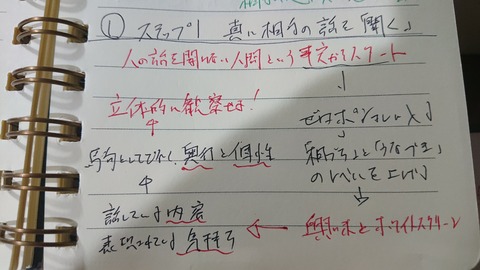 ① ステップ1 「真に相手の話を聞く」
人の話を聞けない人間という事実からスタート
↓
立体的に観察せよ!
ゼロポジションに入る
↑
↓
写真としてでなく、奥行と個性
「相づち」と「うなづき」
のレベルを上げる
↑
↓
話している内容
表現されている気持ち
← 興味とホワイトスクリーン